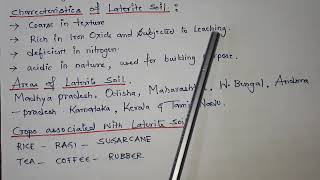 Charecteristics of Laterite Soil :
→ Coarse in texture
→ Rich in Iron Oxide and Subjected to Leaching.
→ deficient in nitrogen.
→ acidic in nature, used for building purpose.
Areas of Laterite Soil.
Madhya pradesh, Odisha, Maharashtra, W. Bengal, Andhra
- pradesh Karnataka, Kerala & Tamil Nadu.
Crops associated with Laterite Soil
RICE - RAGI - SUGARCANE
TEA - COFFEE - RUBBER